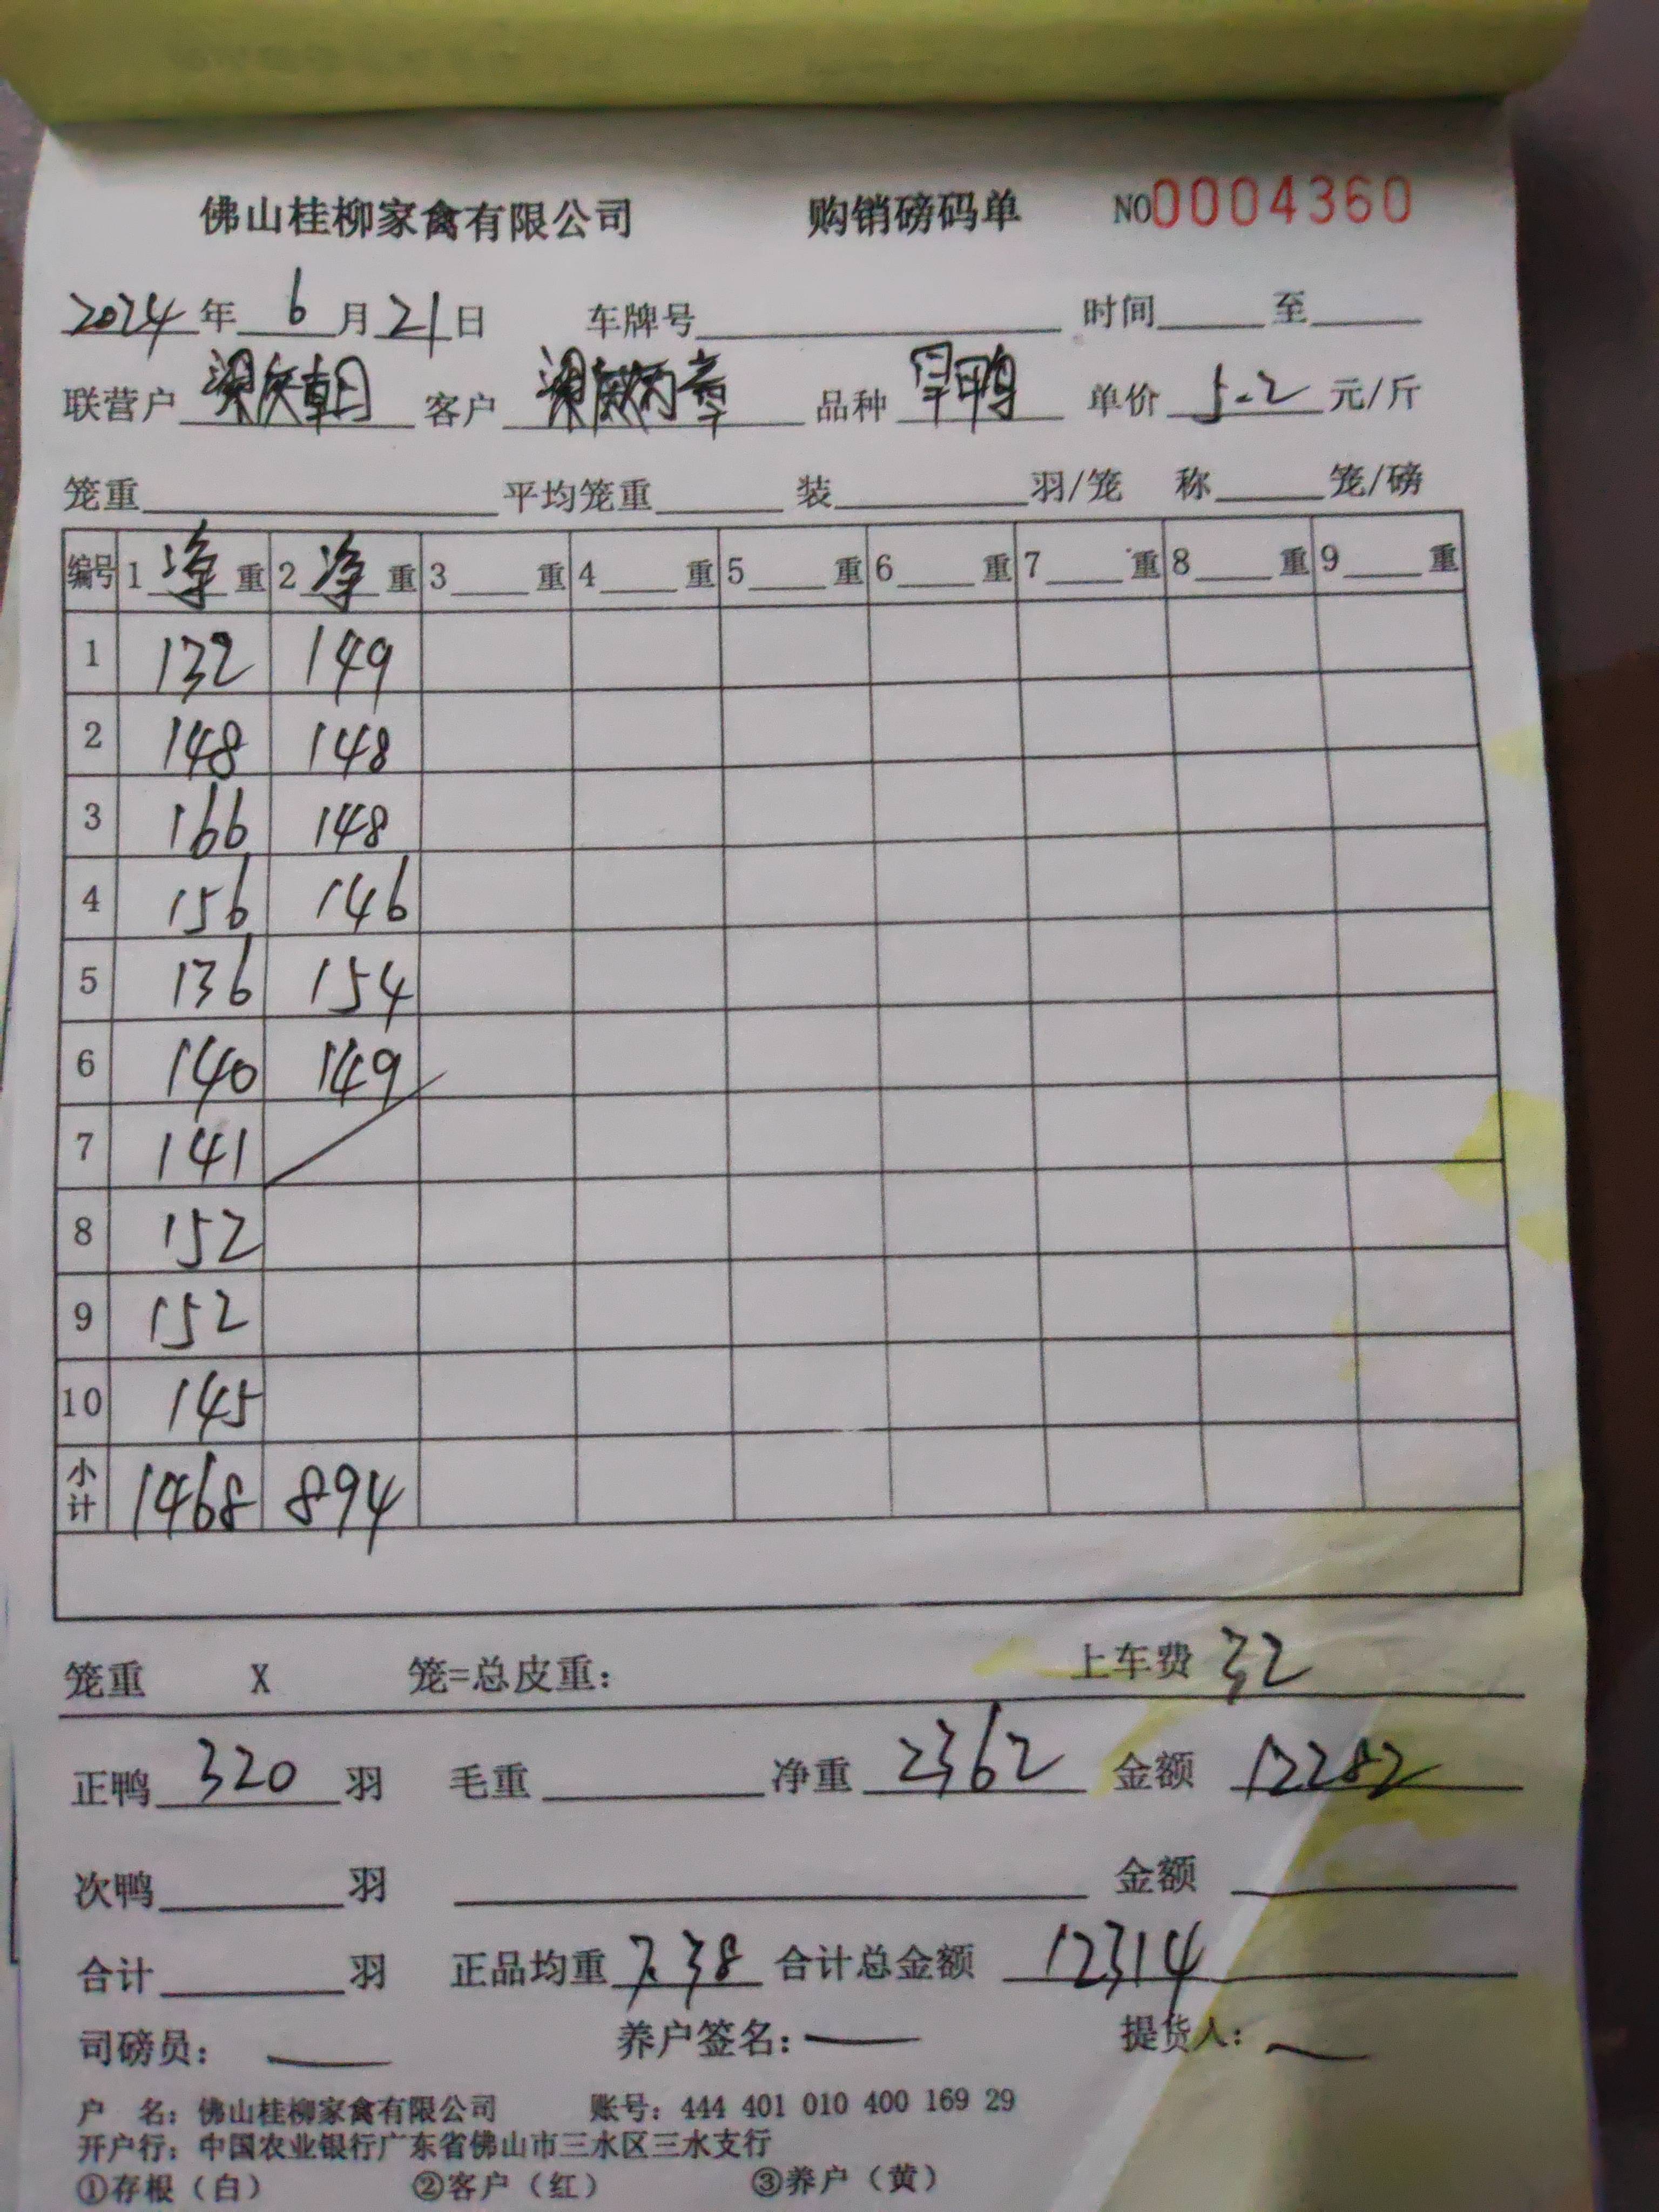 佛山桂柳家禽有限公司 购销磅码单 NO0004360
2024年 6 月 21 日 车牌号 时间 至
联营户 梁庆朝 客户 梁 品种 旱鸭 单价 5.2 元/斤
笼重 平均笼重 装 羽/笼 称 笼/磅
编号 1 净 重 2 净 重 3 重 4 重 5 重 6 重 7 重 8 重 9 重
1 132 149
2 148 148
3 166 148
4 156 146
5 136 154
6 140 149
7 141
8 152
9 152
10 145
小计 1468 894
笼重 X 笼=总皮重: 上车费 32
正鸭 320 羽 毛重 净重 2362 金额 12282
次鸭 羽 金额
合计 羽 正品均重 7.38 合计总金额 12314
司磅员: 养户签名: 提货人:
户 名: 佛山桂柳家禽有限公司 账号: 444 401 010 400 169 29
开户行: 中国农业银行广东省佛山市三水区三水支行
①存根（白） ②客户（红） ③养户（黄）